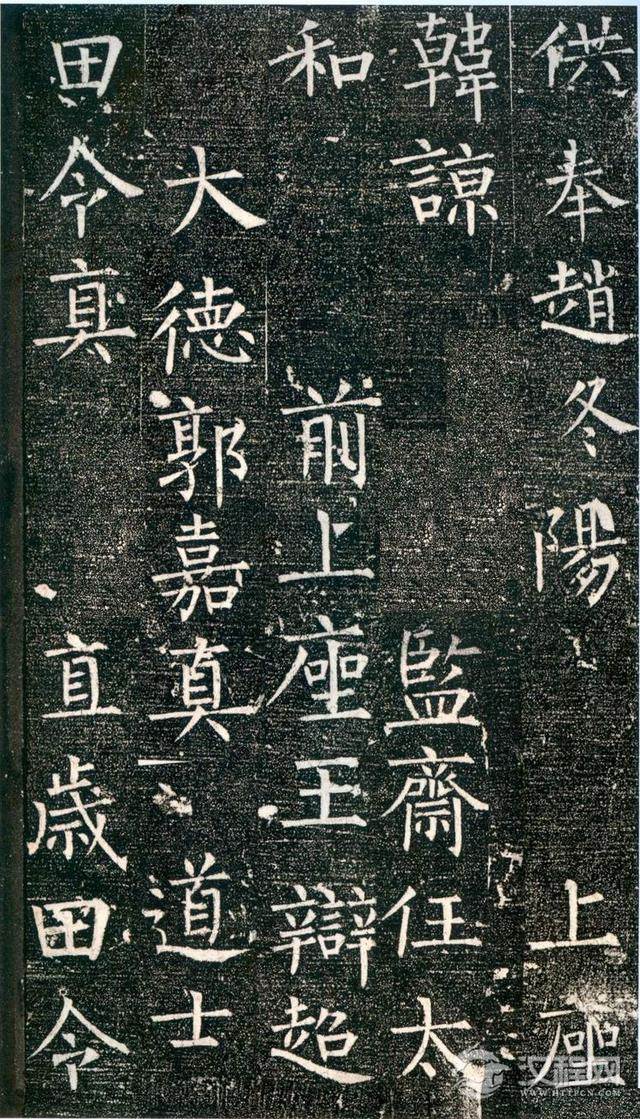 供奉趙冬陽 上座
韓諒 監齋任太
和 前上座王辯超
大德郭嘉真 道士
田令真 直歲田令
汉程网
WWW.HTTPCN.COM